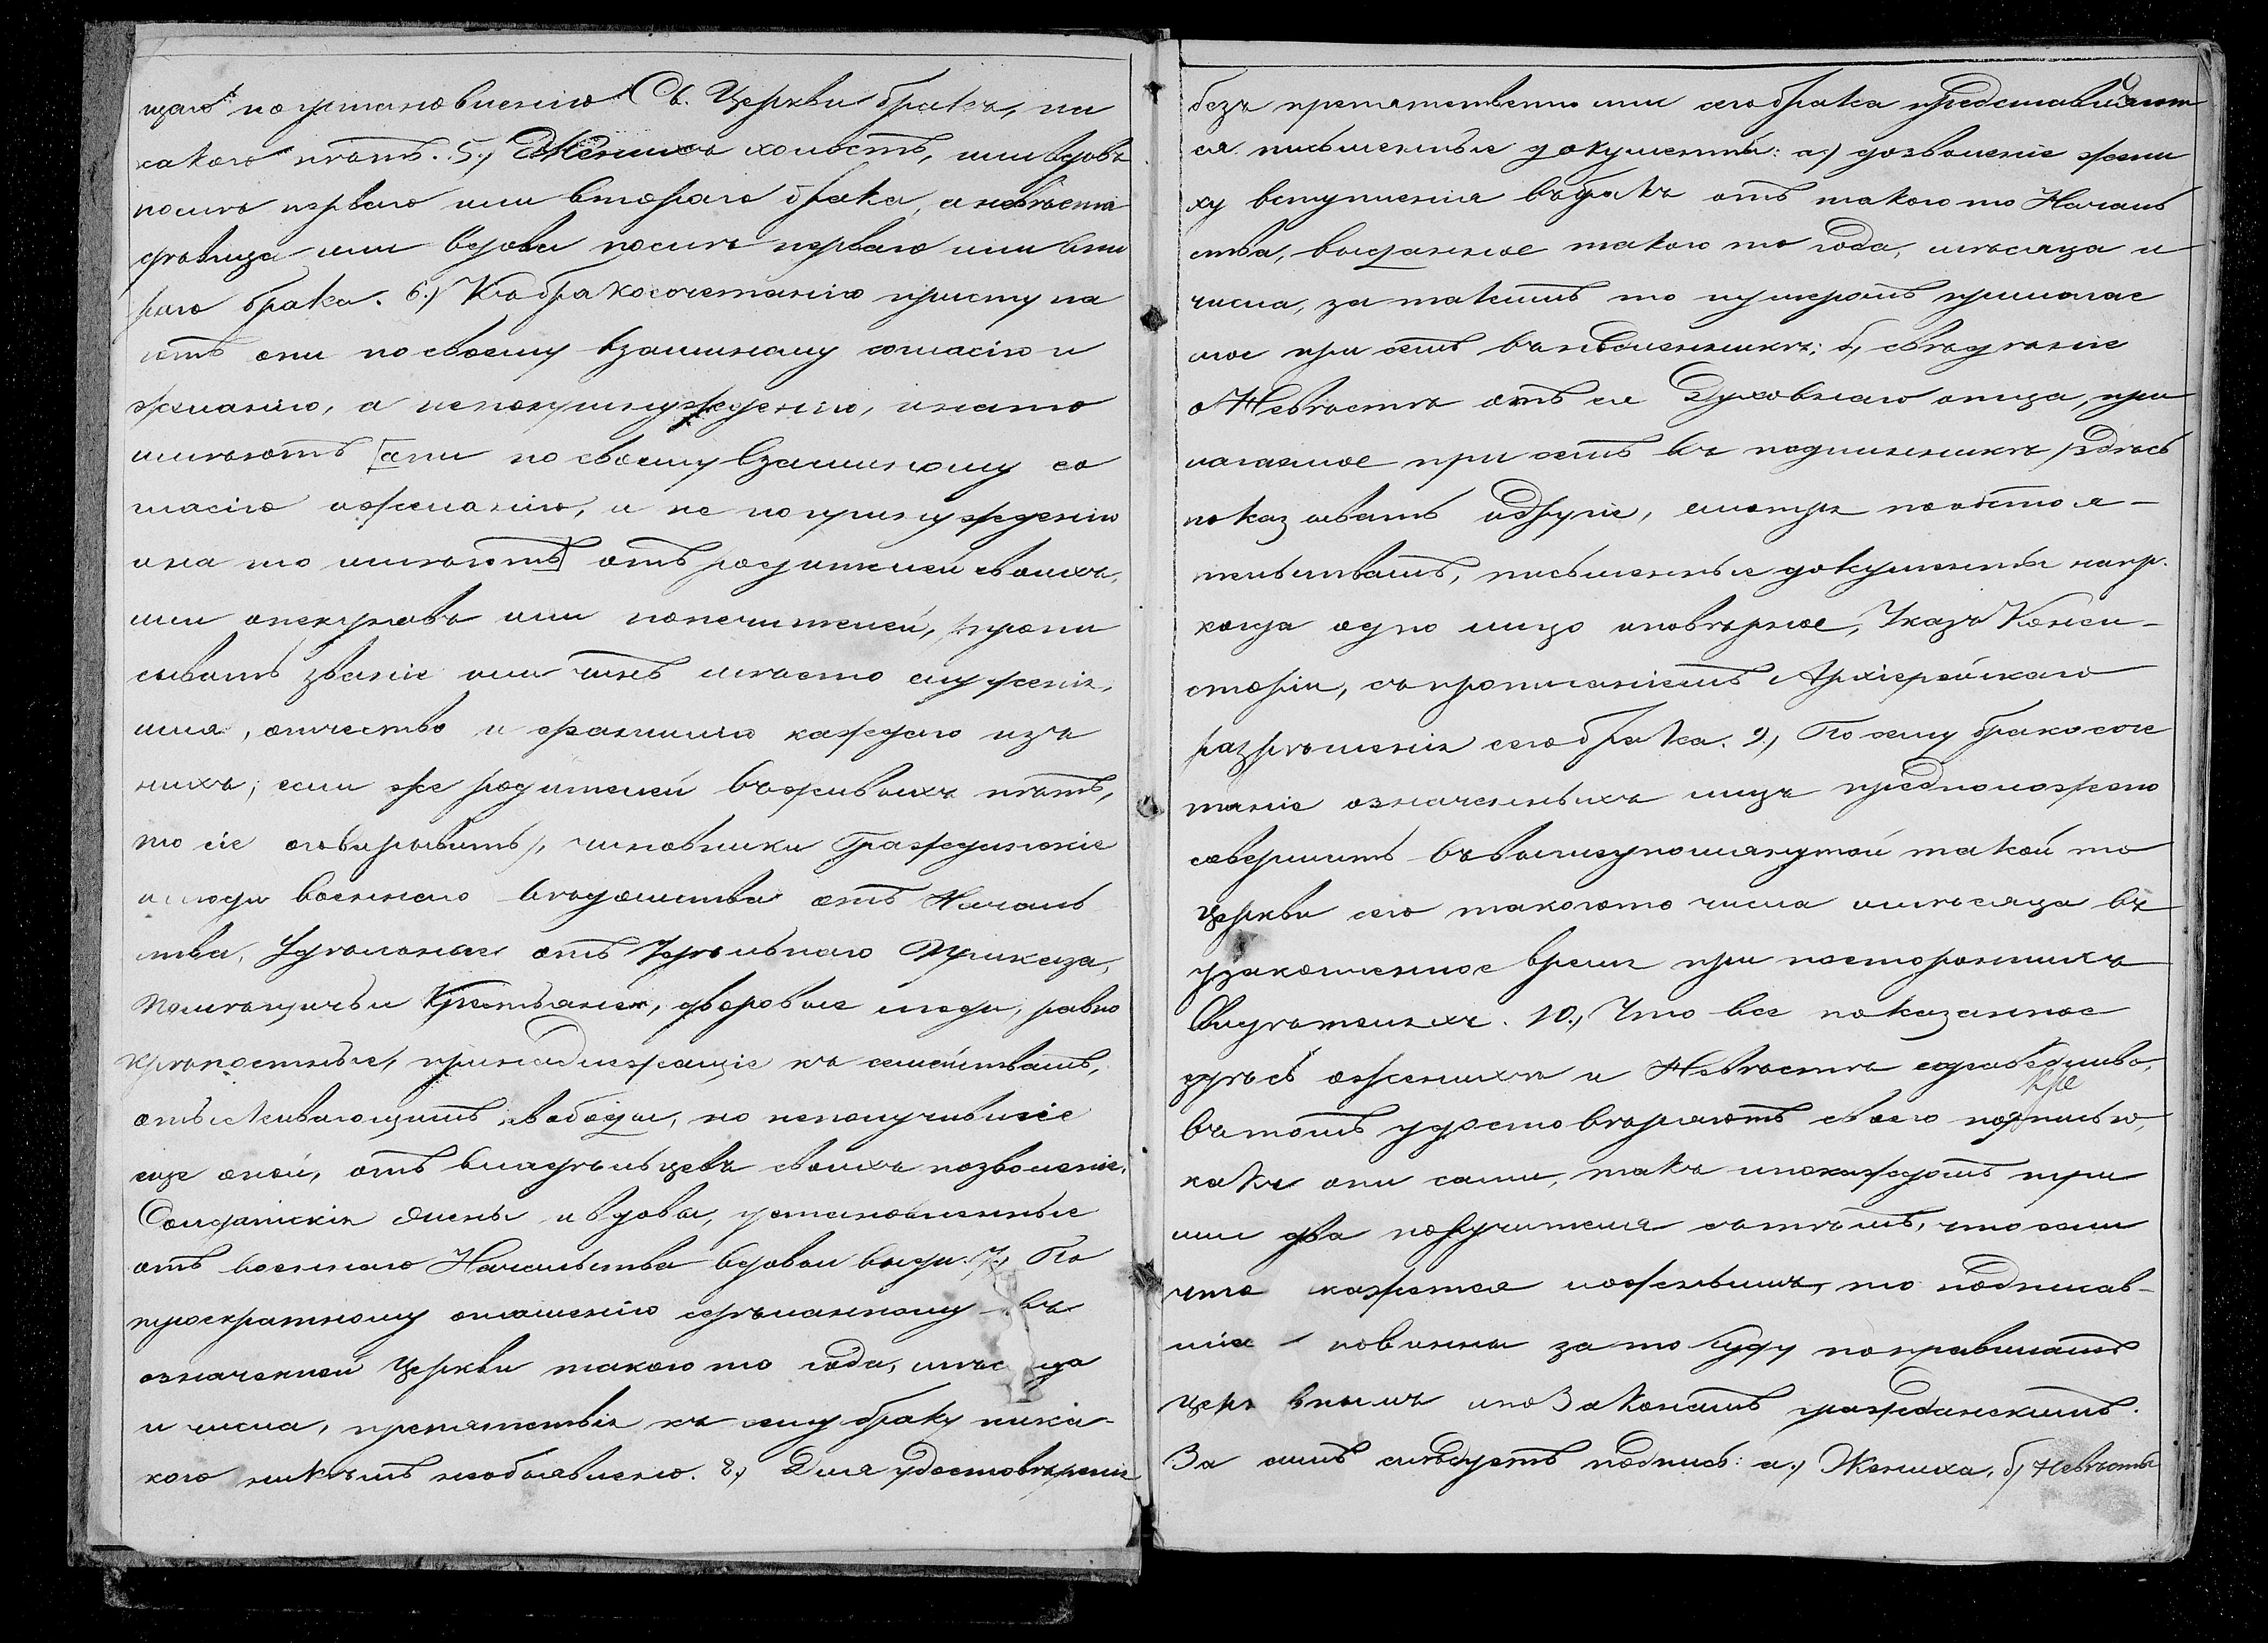 щаго по установленію Св. Церкви бракъ, ни
какого нѣтъ. 5.) Женихъ холостъ, или вдовъ
послѣ перваго или втораго брака, а невѣста
дѣвица или вдова послѣ перваго или вто
раго брака. 6.) Къ бракосочетанію приступа
ютъ они по своему взаимному согласію и
желанію, а не по принужденію, и на то
имѣютъ [они по своему взаимному со
гласію и желанію, и не по принужденію
и на то имѣютъ] отъ родителей своихъ,
или опекуновъ или попечителей, (пропи
сывать званіе или чинъ и мѣсто служенія,
имя, отчество и фамилію каждаго изъ
нихъ; если же родителей въ живыхъ нѣтъ,
то сіе оговаривать), чиновники Гражданскіе
и люди военнаго вѣдомства отъ Началь
ства, Удѣльные отъ Удѣльнаго Приказа,
Помѣщичьи Крестьяне, дворовые люди, равно
крѣпостные, принадлежащіе къ семействамъ,
отыскивающимъ свободы, но неполучившіе
еще оной, отъ владѣльцевъ своихъ позволеніе,
Солдатскія жены и вдовы, установленные
отъ военнаго Начальства вдовьи виды. 7.) По
троекратному оглашенію сдѣланному въ
означенной Церкви такого то года, мѣсяца
и числа, препятствія къ сему браку ника-
кого никѣмъ необъявлено. 8.) Для удостовѣренія
безъ препятственности сего брака представляют
ся письменные документы: а.) дозволеніе жени
ху вступленія въ бракъ отъ такого то Началь
ства, выданное такого то года, мѣсяца и
числа, за такимъ то нумеромъ прилогае
мое при семъ въ подлинникѣ; б.) свѣдѣніе
о Невѣстѣ отъ ея Духовнаго отца, при
лагаемое при семъ въ подлинникѣ (здѣсь
показывать и другіе, смотря по обстоя-
тельствамъ, письменные документы напр.
когда одно лицо иновѣрное, Указъ Конси-
сторіи, съ прописаніемъ Архіерейскаго
разрѣшенія сего брака. 9.) По сему бракосоче
таніе означенныхъ лицъ предположено
совершить въ вышеупомянутой такой то
Церкви сего такого то числа и мѣсяца въ
узаконенное время при постороннихъ
Свидѣтеляхъ. 10.) Что все показанное
здѣсь о женихѣ и Невѣстѣ справедливо,
въ томъ удостовѣряютъ своею подписью,
какъ они сами, такъ и по каждомъ три
или два поручителя съ тѣмъ, что если
что кажется ложнымъ, то подписав-
шіе повинны за то суду по правиламъ
церковнымъ и по Законамъ гражданскимъ.
За симъ слѣдуетъ подпись: а.) Жениха, б.) Невѣсты